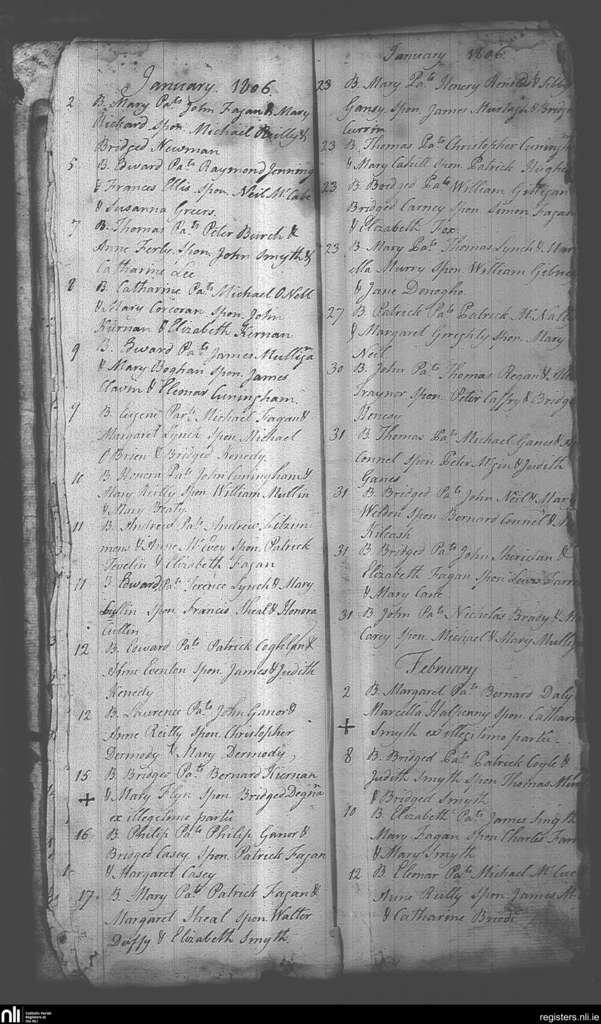 January 1806
2 B. Mary Pats John Fagan & Mary
Rickard Spon. Michael Reilly &
Bridged Newman
5 B. Edward Pats Raymond Jenning
& Frances Ellis Spon. Neil McCabe
& Susanna Greers
7 B. Thomas Pats Peter Burch &
Anne Forbs Spon. John Smyth &
Catharine Lee
8 B. Catharine Pats Michael O Nell
& Mary Corcoran Spon. John
Kiernan & Elizabeth Kernan
9 B. Edward Pats James Mulligan
& Mary Boghan Spon. James
Flavin & Eleonar Cuningham
9 B. Eugene Pats Michael Fagan &
Margaret Lynch Spon Michael
O Brien & Bridged Kenedy
10 B. Honora Pats John Cuningham &
Mary Reilly Spon William Mullin
& Mary Braty
11 B. Andrew Pats Andrew Fitzim
mons & Anne McEvoy Spon. Patrick
Fevelin & Elizabeth Fagan
11 B Edward Pats Terence Lynch & Mary
Spon Francis Sheal & Honora
Cullin
12 B. Edward Pats Patrick Coghlan &
Anne Evenlon Spon. James & Judith
Kenedy
12 B. Laurence Pats John Ganor &
Anne Reilly Spon. Christopher
Dermody & Mary Dermody
15 B Bridged Pats Bernard Kiernan
+ & Mary Flyn Spon. Bridged Degna
ex illegitimo partu
16 B. Philip Pats Philip Ganor &
Bridged Casey Spon. Patrick Fagan
& Margaret Casey
17 B. Mary Pats Patrick Fagan &
Margaret Sheal Spon. Walter
Duffy & Elizabeth Smyth
January 1806
23 B. Mary Pats Henery &
Ganey Spon. James Murtagh & Bridge
Currin
23 B. Thomas Pats Christopher Cuningham
& Mary Cahill Spon Patrick Hughe
23 B. Bridged Pats William Gilligan
Bridged Carney Spon Simon Fagan
& Elizabeth Fox
23 B. Mary Pats Thomas Lynch & Mar
ella Murry Spon William Gibney
& Jane Donogho
27 B Patrick Pats Patrick McNall
& Margaret Greghly Spon. Mary
Neil
30 B. John Pats Thomas Regan &
Traynor Spon. Peter Caffy & Bridge
31 B. Thomas Pats Michael Ganes &
Connel Spon Peter & Judith
Ganes
31 B Bridged Pats John Neil & Mary
Weldon Spon Bernard Connel &
Kilcash
31 B Bridged Pats John Sheridan &
Elizabeth Fagan Spon Lewis Farre
& Mary Cane
31 B. John Pats Nicholas Brady & Ma
Carey Spon Michael & Mary Mulli
February
2 B. Margaret Pats Bernard Daly
Marcella Halpenny Spon. Cathar
+ Smyth ex illegitimo partu
8 B. Bridged Pats Patrick Coyle &
Judith Smyth Spon Thomas
& Bridged Smyth
10 B. Elizabeth Pats James Smyth
Mary Fagan Spon Charles Farr
& Mary Smyth
12 B Eleonar Pats Michael McCue
Anne Reilly Spon James M
& Catharine
nli
Catholic Parish
Registers at
the NLI
registers.nli.ie